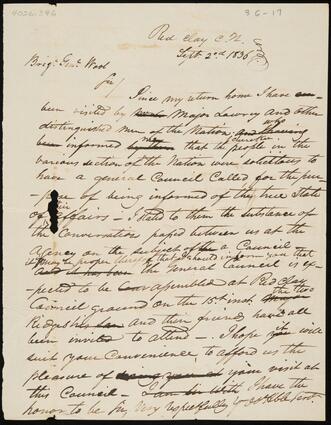 4026.346
36-17
Red Clay C.N.
Sept 2nd 1836
Brigr. Genl. Wool
Sir
Since my return home I have
been visited by Major Lowrey and other
distinguished men of the Nation, who
been informed that the people in the
various section of the Nation were solicitous to
have a general Council Called for the pur-
-pose of being informed of the true State
of Affairs – I Stated to them the substance of
the Conversation passed between us at the
Agency on the subject of a Council
it proper that I should inform you that
the General Council is ex-
-pected to be assembled at Red Clay
Council ground on the 15th inst. the two
Ridges and their friends have all
been invited to attend – I hope it will
suit your Convenience to afford us the
pleasure of your visit at
this Council – I have the
honor to be Sir very respectfully yr obt hble Servt